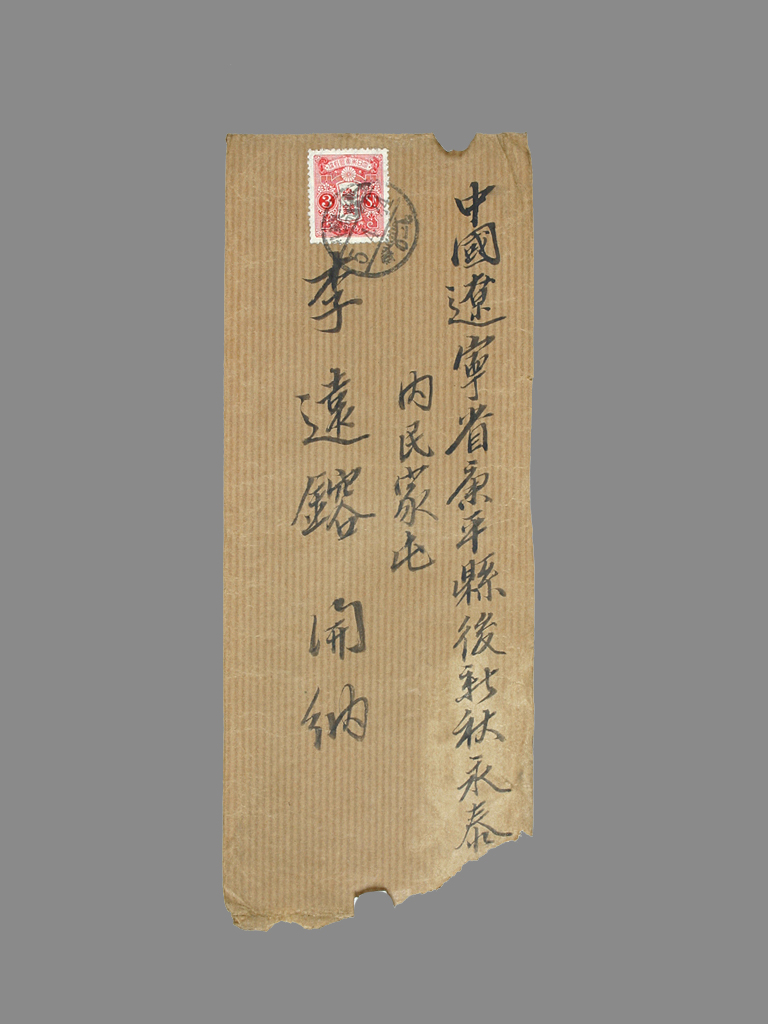 中國遼寧省康平縣後新秋永泰
內民家屯
李遠鎔開納
3 Sn